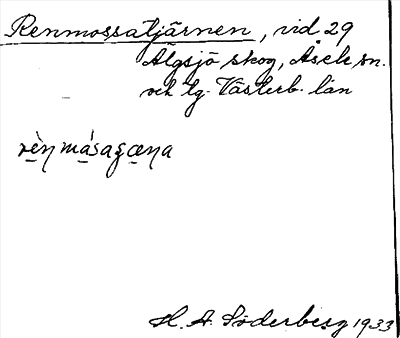 Renmossatjärnen, vid 29
Älgsjö skog, Åsele sn.
och lg. Västerb. län
rèn måsaȿæṇa
H. A. Söderberg 1933